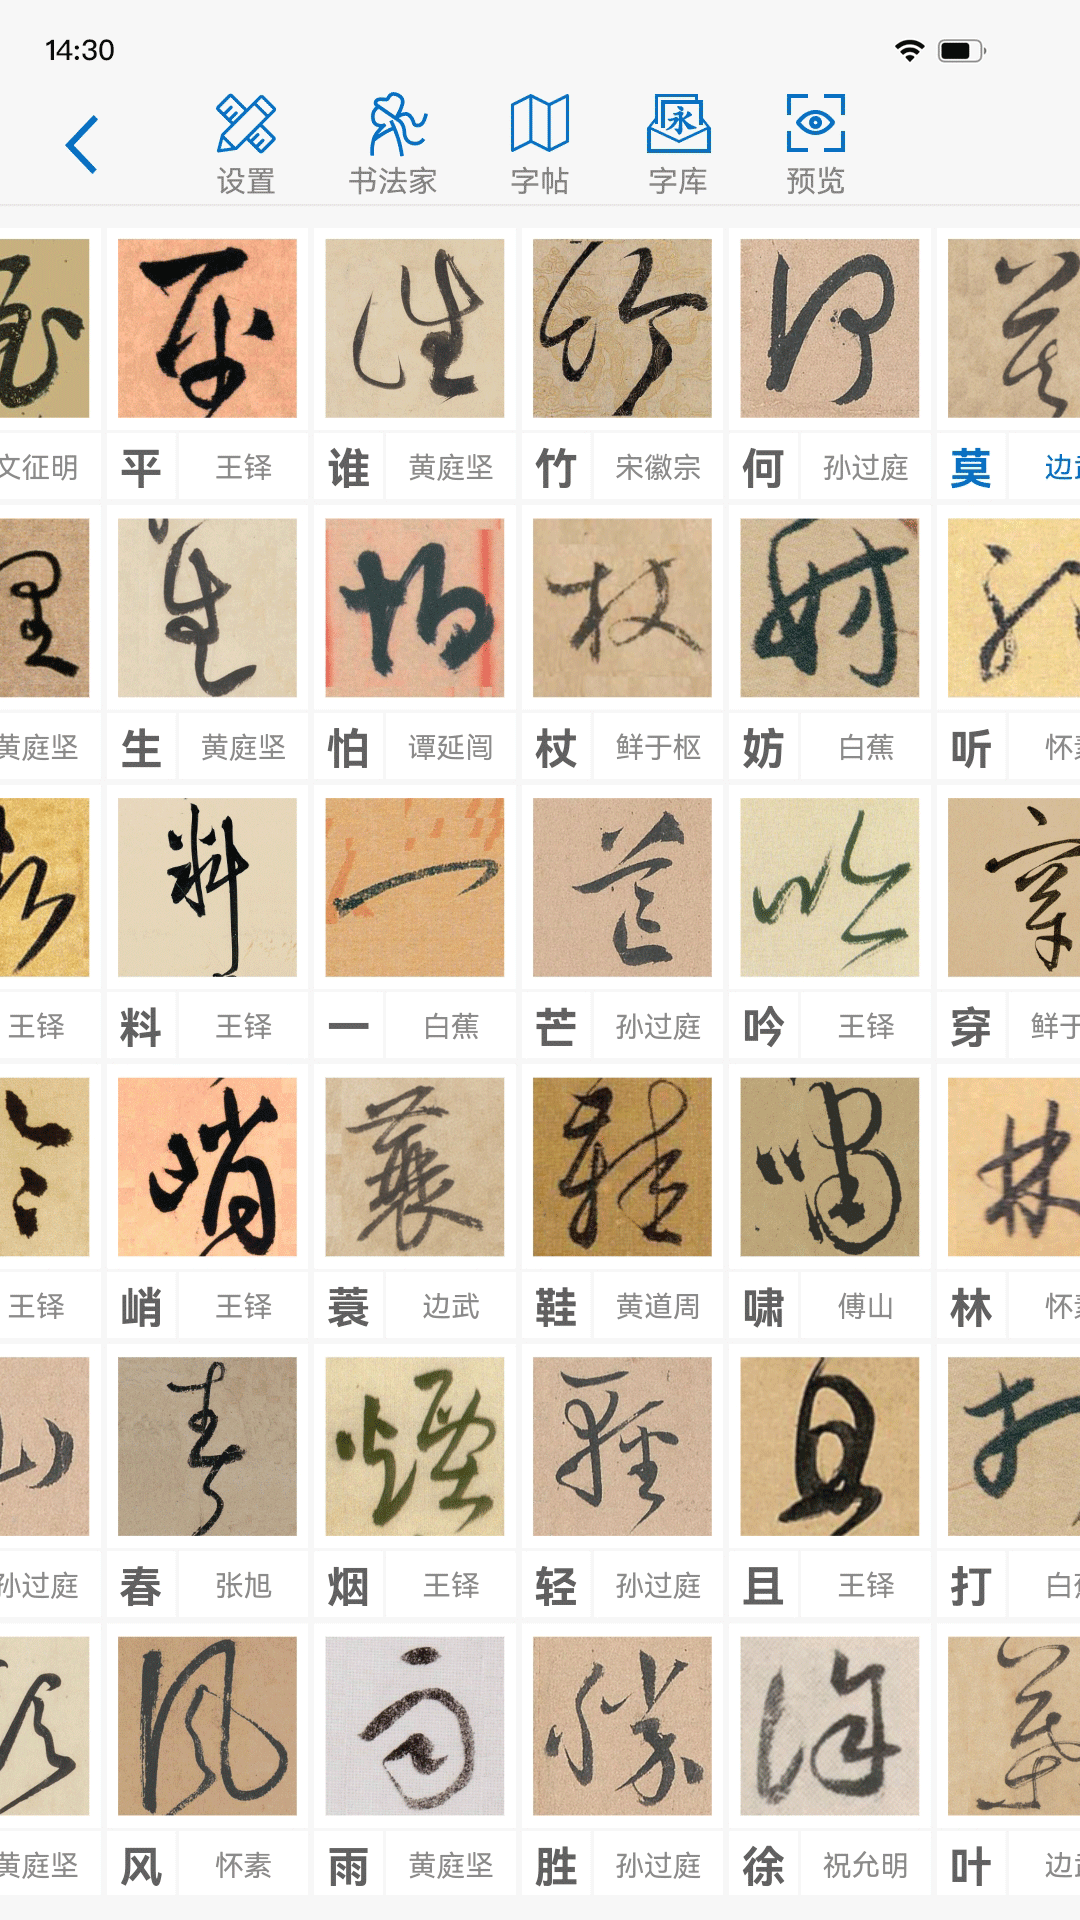 14:30
设置 书法家 字帖 字库 预览
文征明 平 王铎 谁 黄庭坚 竹 宋徽宗 何 孙过庭 莫 边武
黄庭坚 生 黄庭坚 怕 谭延闿 杖 鲜于枢 妨 白蕉 听 怀素
王铎 料 王铎 一 白蕉 芒 孙过庭 吟 王铎 穿 鲜于
王铎 峭 王铎 蓑 边武 鞋 黄道周 啸 傅山 林 怀素
孙过庭 春 张旭 烟 王铎 轻 孙过庭 且 王铎 打 白蕉
黄庭坚 风 怀素 雨 黄庭坚 胜 孙过庭 徐 祝允明 叶 边武